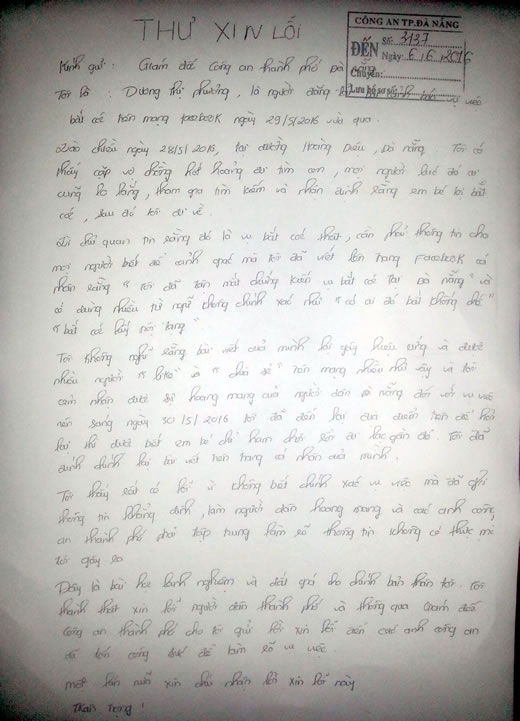 THƯ XIN LỖI
CÔNG AN TP.ĐÀ NẴNG
ĐẾN
Số: 3137
Ngày: 6/6/2016
Chuyển:
Lưu hồ sơ số:
Kính gửi: Giám đốc Công an thành phố Đà
Tôi là: Dương thị phương, là người đăng vụ việc
bắt cóc trên mạng facebook ngày 29/5/2016 vừa qua.
Vào chiều ngày 28/5/2016, tại đường Hoàng Diệu, Đà nẵng. Tôi có
thấy cặp vợ chồng hốt hoảng đi tìm con, mọi người lúc đó ai
cũng lo lắng, tham gia tìm kiếm và nhận định rằng em bé bị bắt
cóc, sau đó tôi đi về.
Vì chủ quan tin rằng đó là vụ bắt cóc thật, cần phải thông tin cho
mọi người biết để cảnh giác mà tôi đã viết lên trang Facebook cá
nhân rằng "Tôi đã tận mắt chứng kiến vụ bắt cóc tại Đà nẵng" và
có dùng nhiều từ ngữ không chính xác như "có ai đó bắt không chế"
"bắt cóc lấy nội tạng"
Tôi không nghĩ rằng bài viết của mình lại gây hiệu ứng và được
nhiều người "like" và "chia sẻ" trên mạng nhiều như vậy và tôi
cảm nhận được sự hoang mang của người dân Đà nẵng đối với vụ việc
nên sáng ngày 30/5/2016 tôi đã đến lại địa điểm trên để hỏi
lại thì được biết em bé chỉ ham chơi rồi đi lạc gần đó. Tôi đã
đính chính lại bài viết trên trang cá nhân của mình.
Tôi thấy rất có lỗi vì không biết chính xác vụ việc mà đã ghi
thông tin khẳng định, làm người dân hoang mang và các anh công
an thành phố phải tập trung làm rõ thông tin không có thực mà
tôi gây ra
Đây là bài học kinh nghiệm và đắt giá cho chính bản thân tôi. Tôi
thành thật xin lỗi người dân thành phố và thông qua Giám đốc
Công an thành phố cho tôi gửi lời xin lỗi đến các anh công an
đã tốn công sức để làm rõ vụ việc.
một lần nữa xin chú nhận lời xin lỗi này
Trân trọng!